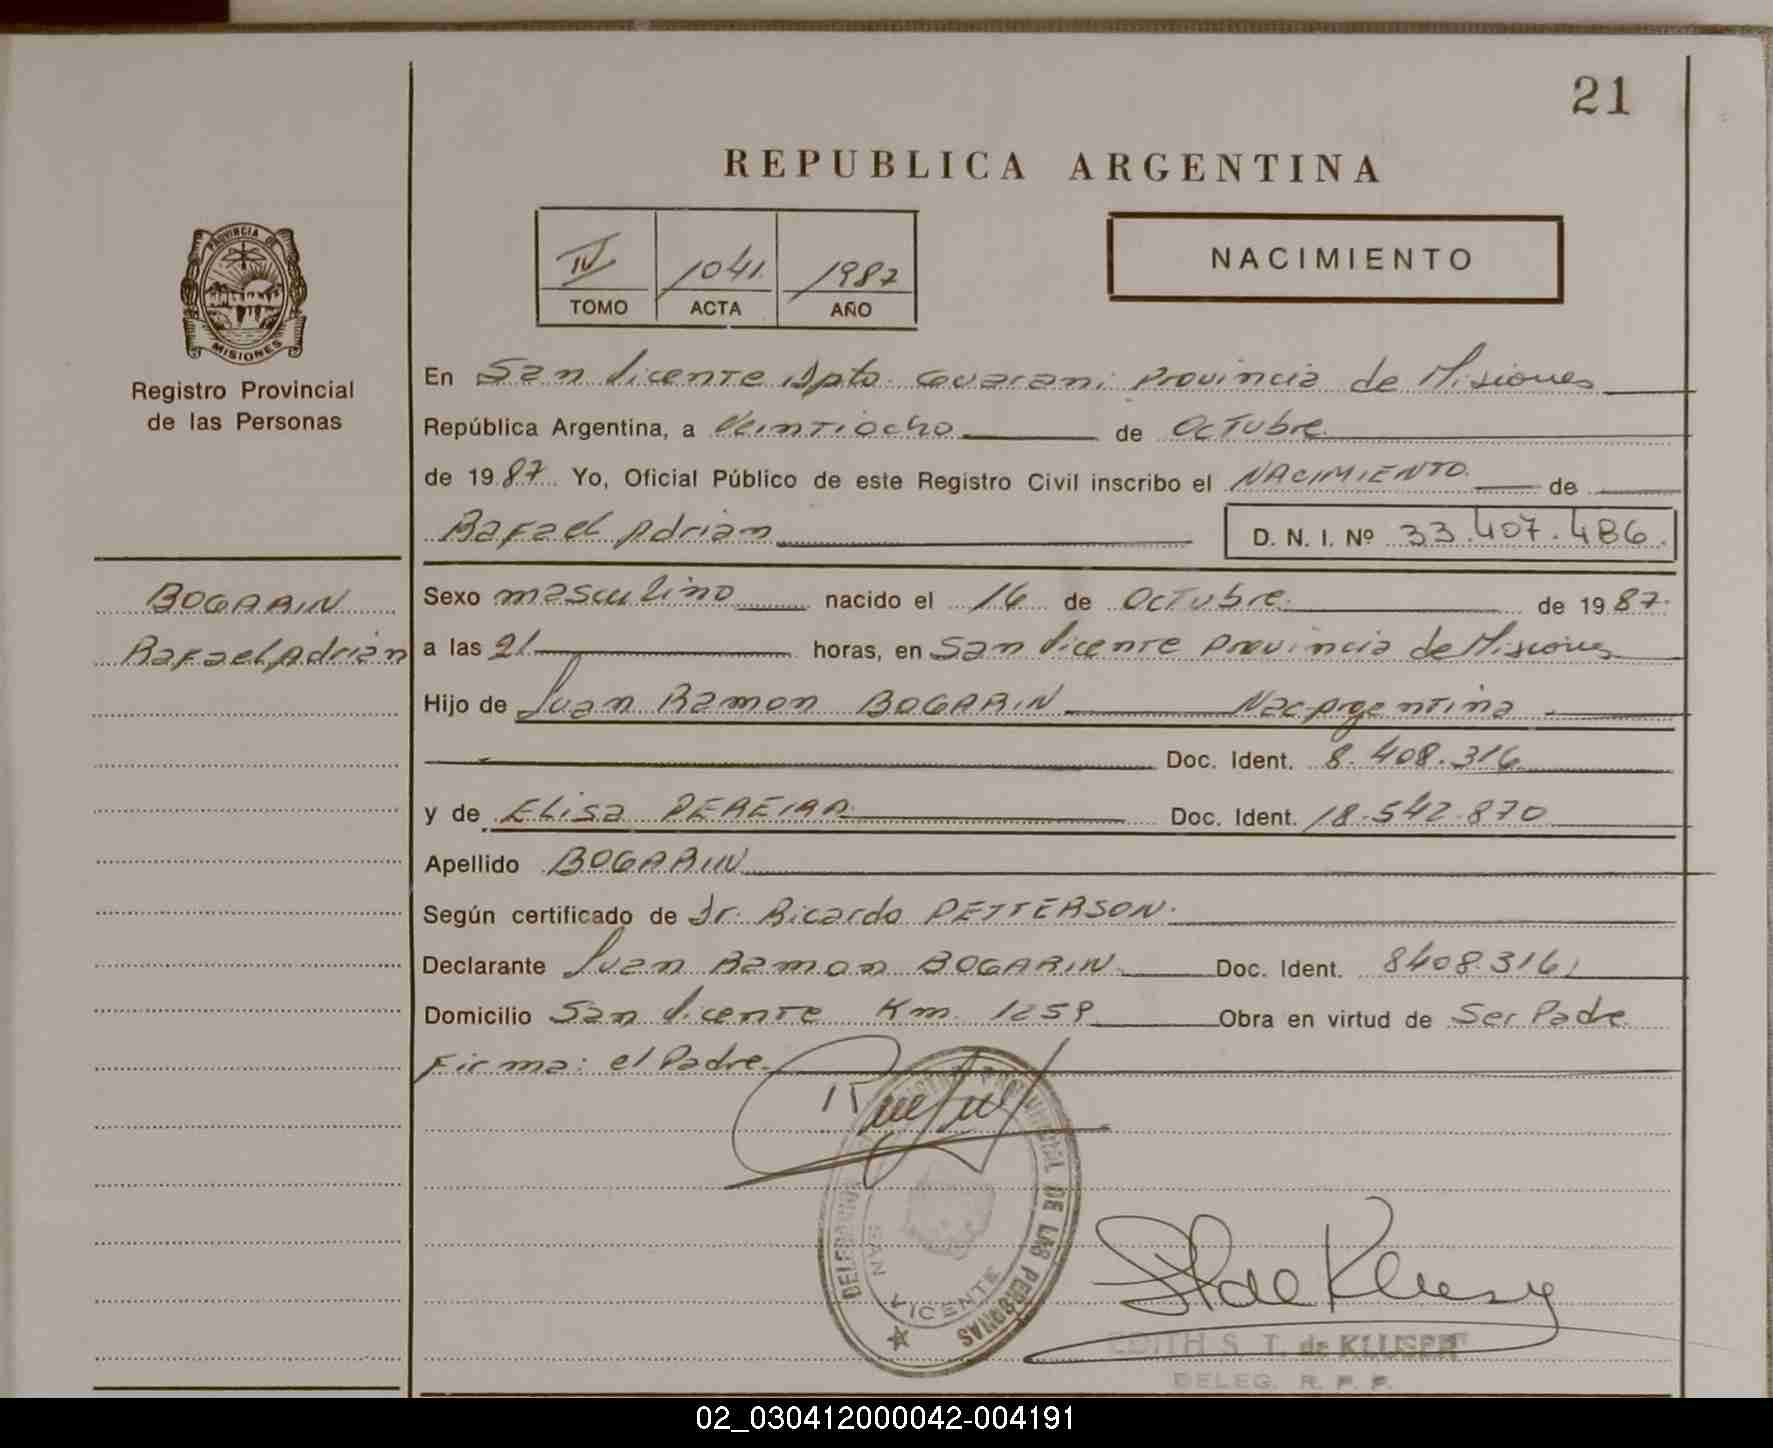 21
REPUBLICA ARGENTINA
PROVINCIA DE
MISIONES
Registro Provincial
de las Personas
IV 1041 1987
TOMO ACTA AÑO
NACIMIENTO
En San Vicente Dpto. Guarani Provincia de Misiones
República Argentina, a Veintiocho de Octubre
de 1987 Yo, Oficial Público de este Registro Civil inscribo el NACIMIENTO de
Rafael Adrian
D. N. I. Nº 33.407.486.
BOGARIN
Rafael Adrián
Sexo masculino nacido el 16 de Octubre de 1987.
a las 21 horas, en San Vicente Provincia de Misiones
Hijo de Juan Ramon BOGARIN Nac Argentina
Doc. Ident. 8.408.316
y de Elisa PEREIRA Doc. Ident. 18.542.870
Apellido BOGARIN
Según certificado de Dr. Ricardo PETTERSON.
Declarante Juan Ramon BOGARIN Doc. Ident. 8408.316
Domicilio San Vicente Km. 1259 Obra en virtud de Ser Padre
Firma: el Padre
PROVINCIAL DE LAS PERSONAS
SAN VICENTE
EDITH S. T. de KLUSER
DELEG. R. P. P.
02_030412000042-004191